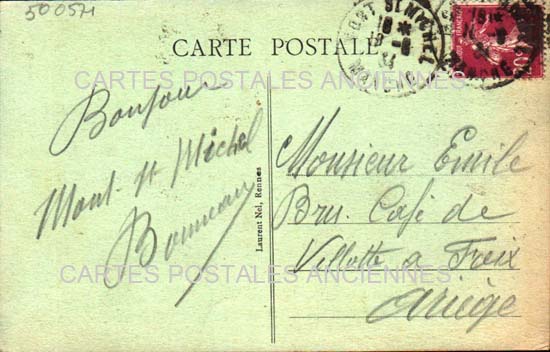 500571
CARTE POSTALE
MONT ST MICHEL
18 *
18 - 8
34
MANCHE
CARTES POSTALES ANCIENNES
Bonjour
Mont St Michel
Bonneau
Laurent Nel, Rennes
Monsieur Emile
Bru. Café de
Villotte a Foix
Ariège
CARTES POSTALES ANCIENNES